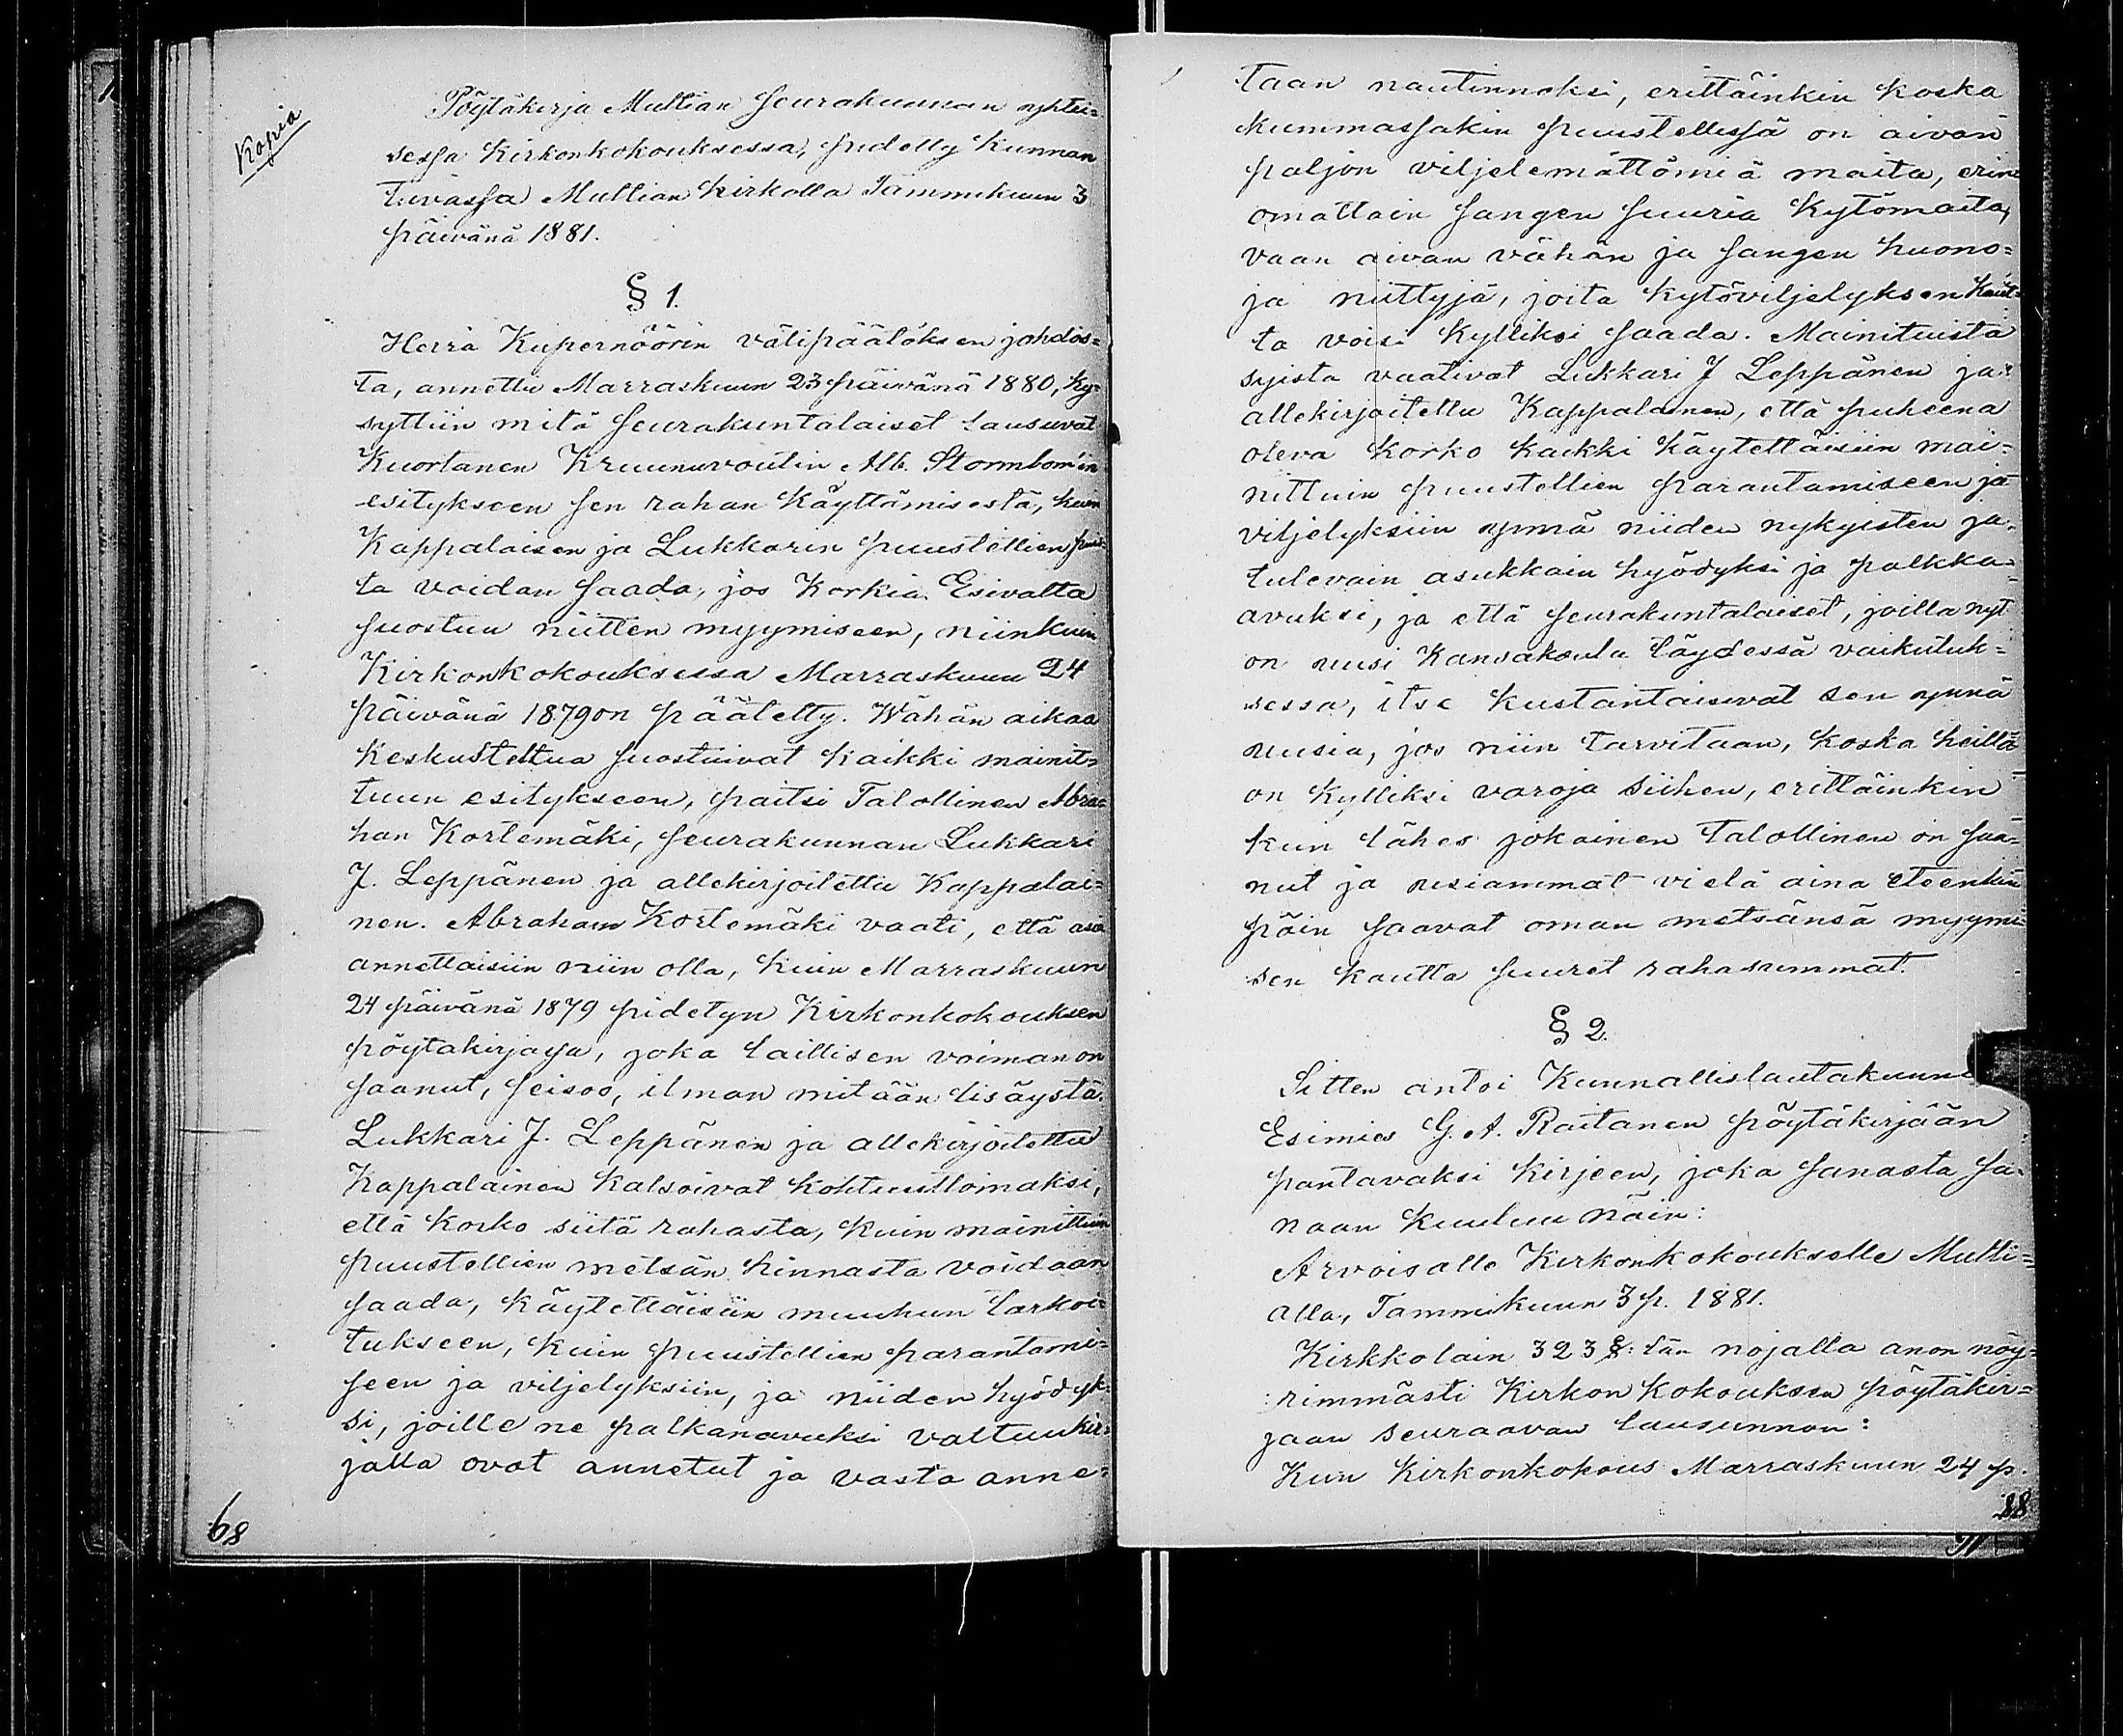 Kopia
Pöytäkirja Multian seurakunnan yhtei=
sessa Kirkonkokouksessa, pidetty Kunnan
tuvassa Multian Kirkolla Tammikuun 3
päivänä 1881.
§ 1.
Herra Kupernöörin välipäätöksen johdos=
ta, annettu Marraskuun 23 päivänä 1880, ky=
syttiin mitä seurakuntalaiset lausuvat
Kuortanen Kruunuvoutin Alb. Stormbom'in
esitykseen sen rahan Käyttämisestä, kuin
Kappalaisen ja Lukkarin puustellien puus=
ta voidan saada, jos Korkia Esivalta
suostuu niitten myymiseen, niinkuun
Kirkonkokouksessa Marraskuun 24
päivänä 1879 on päätetty. Wähän aikaa
Keskusteltua suostuivat kaikki mainit=
tuun esitykseen, paitsi Talollinen Abra=
han Kortemäki, seurakunnan Lukkari
J. Leppänen ja allekirjoitettu Kappalai=
nen. Abraham Kortemäki vaati, että asia
annettaisiin niin olla, kuin Marraskuun
24 päivänä 1879 pidetyn Kirkonkokouksen
pöytäkirjassa, joka laillisen voiman on
saanut, seisoo, ilman mitään lisäystä.
Lukkari J. Leppänen ja allekirjoitettu
Kappalainen Katsoivat Kohtuuttomaksi,
että Korko siitä rahasta, kuin mainittuin
puustellien metsän hinnasta voidaan
saada, käytettäisiin muuhun tarkoi=
tukseen, kuin puustellien parantami=
seen ja viljelyksiin, ja niiden hyödyk=
si, joille ne palkanavuksi valtuukir=
jalla ovat annetut ja vasta anne=
68
taan nautinnoksi, erittäinkin koska
Kummassakin puustellissä on aivan
paljon viljelemättömiä maita, erin=
omattain sangen suuria Kytömaita,
vaan aivan vähän ja sangen huono=
ja niittyjä, joita Kytöviljelyksen kaut=
ta voisi Kylliksi saada. Mainituista
syista vaativat Lukkari J Leppänen ja
allekirjoitettu Kappalainen, että puheena
oleva Korko kaikki Käytettäisiin mai=
nittuin puustellien parantamiseen ja
viljelyksiin ynnä niiden nykyisten ja
tulevain asukkain hyödyksi ja palkka=
avuksi, ja että seurakuntalaiset, joilla nyt
on uusi Kansakoulu täydessä vaikutuk=
sessa, itse kustantaisivat sen ynnä
uusia, jos niin tarvitaan, koska heillä
on Kylliksi varoja siihen, erittäinkin
kuin lähes jokainen Talollinen on saa=
nut ja usiammat vielä aina eteenkin
päin saavat oman metsänsä myymi=
sen kautta suuret rahasummat.
§ 2.
Sitten antoi Kunnallislautakunn
Esimies G. A. Raitanen pöytäkirjään
pantavaksi Kirjeen, joka sanasta sa=
naan kuuluu näin:
Arvoisalle Kirkonkokoukselle Multi=
alla, Tammikuun 3 p. 1881.
Kirkkolain 323 §: län nojalla anon nöy=
rimmästi Kirkon Kokouksen pöytäkir=
jaan seuraavan lausunnon:
Kun Kirkonkokous Marraskuun 24 p.
88